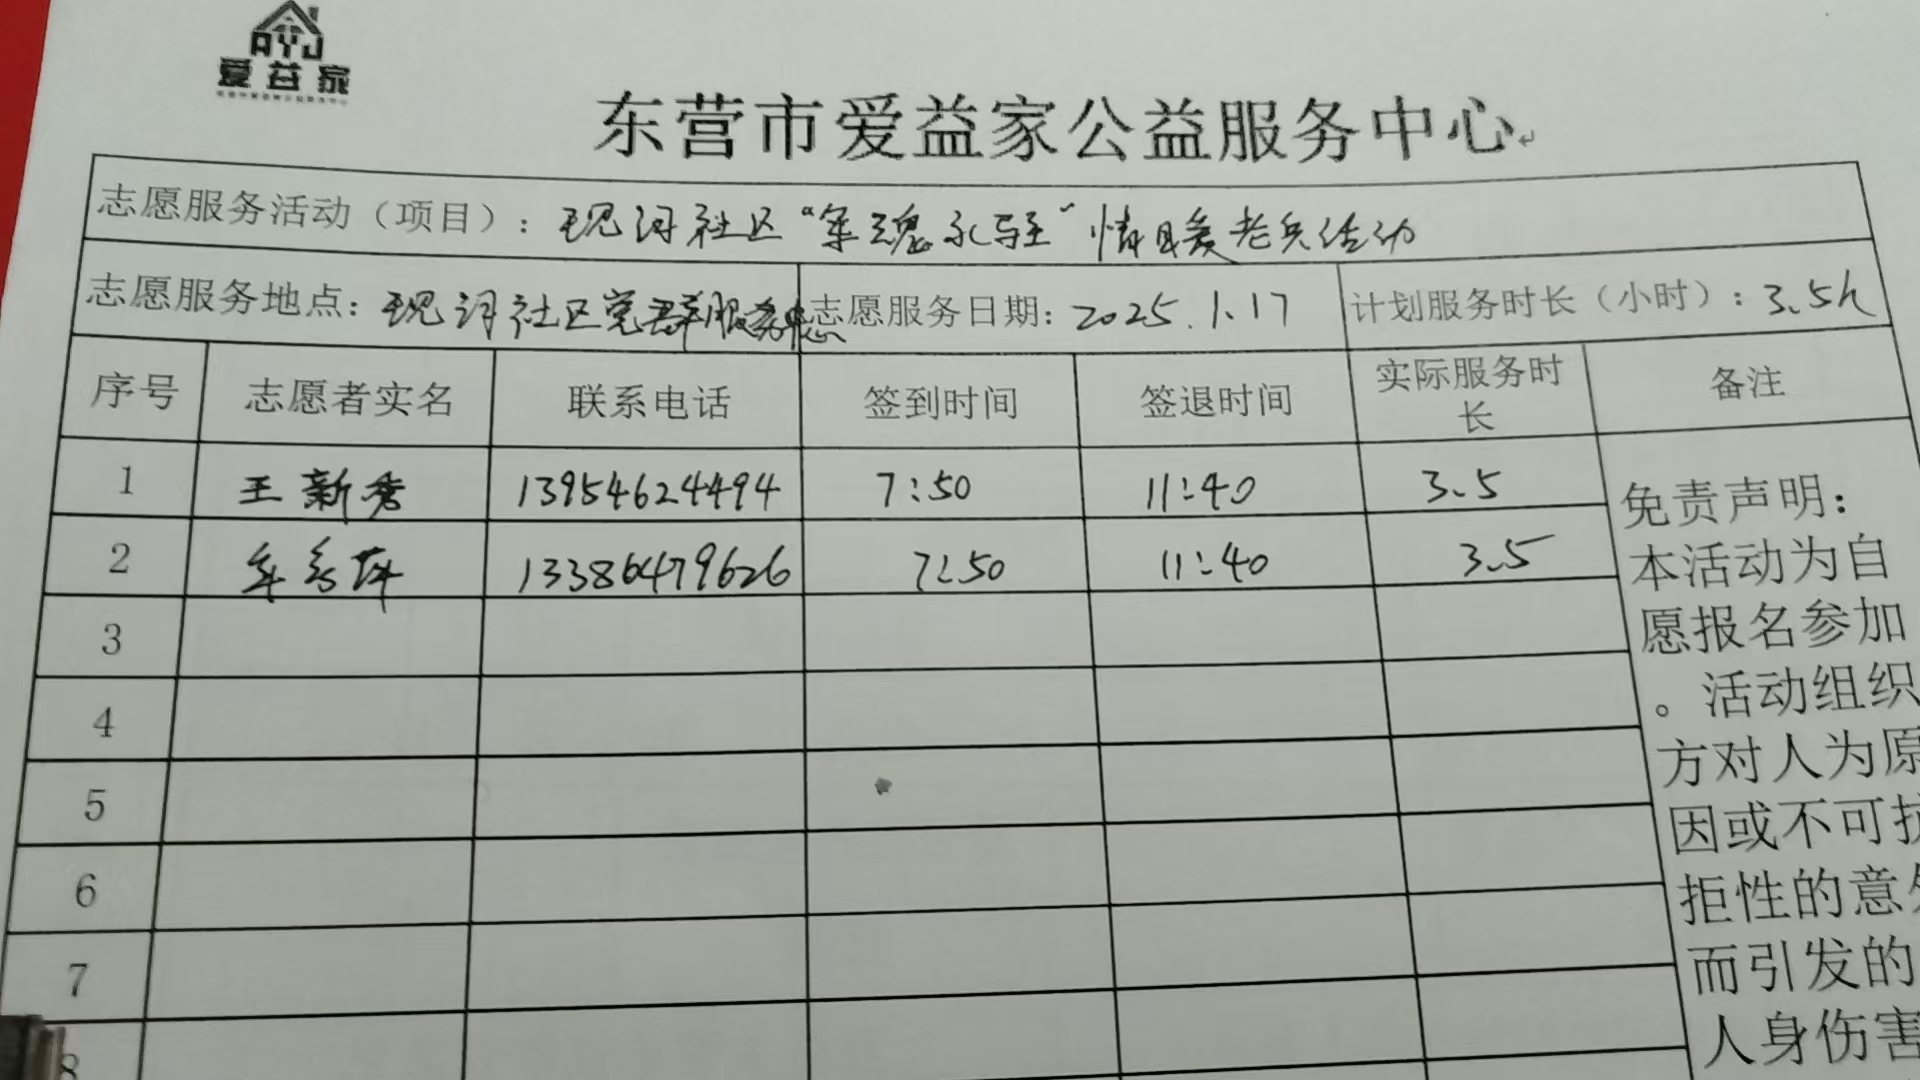 AYJ
爱益家
东营市爱益家公益服务中心
志愿服务活动（项目）：现河社区“军魂永驻”情暖老兵活动
志愿服务地点：现河社区党群服务中心 志愿服务日期：2025.1.17 计划服务时长（小时）：3.5h
序号 志愿者实名 联系电话 签到时间 签退时间 实际服务时长 备注
1 王新秀 13954624494 7:50 11:40 3.5
2 13386479626 7:50 11:40 3.5
3
4
5
6
7
8
免责声明：
本活动为自
愿报名参加
。活动组织
方对人为原
因或不可抗
拒性的意外
而引发的
人身伤害